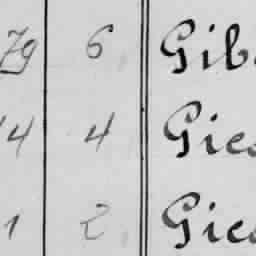 79 6 Gib
14 4 Gies
1 2 Gies